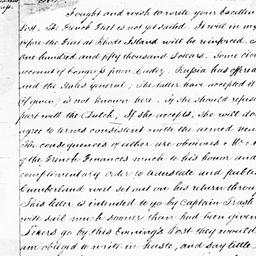 I ought and wish to write your Excellen
Post, The French Fleet is not yet sailed. It will in my
before the Fleet at Rhode Island will be reinforced. A
one hundred and fifty thousand dollars. Some
account of Congress from Cadiz. Russia has offered
and the States General; the latter have accepted it
if given, is not known here. If she should refuse
part with the Dutch; If she accepts, she will do
agree to terms consistent with the armed neu
The consequences of either are obvious. Mr.
of the French Finances much to his honor and
complimentary order to translate and publis
Cumberland will set out on his return throu
This letter is intended to go by Captain Trash
will sail much sooner than had been given
Letters go by this Evening's Post they would
am obliged to write in haste, and say little